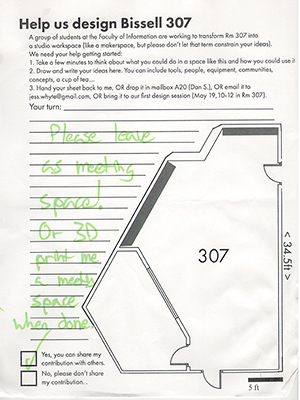 Help us design Bissell 307
A group of students at the Faculty of Information are working to transform Rm 307 into
a studio workspace (like a makerspace, but please don't let that term constrain your ideas).
We need your help getting started:
1. Take a few minutes to think about what you could do in a space like this and how you could use it
2. Draw and write your ideas here. You can include tools, people, equipment, communities,
concepts, a cup of tea...
3. Hand your sheet back to me, OR drop it in mailbox A20 (Dan S.), OR email it to
jess.whyte@gmail.com, OR bring it to our first design session (May 19,10-12 in Rm 307).
Your turn:
Please leave
as meeting
space!
Or 3D
print me
a meeting
space
when done.
307
< 34.5ft >
5 ft
Yes, you can share my
contribution with others.
No, please don't share
my contribution...